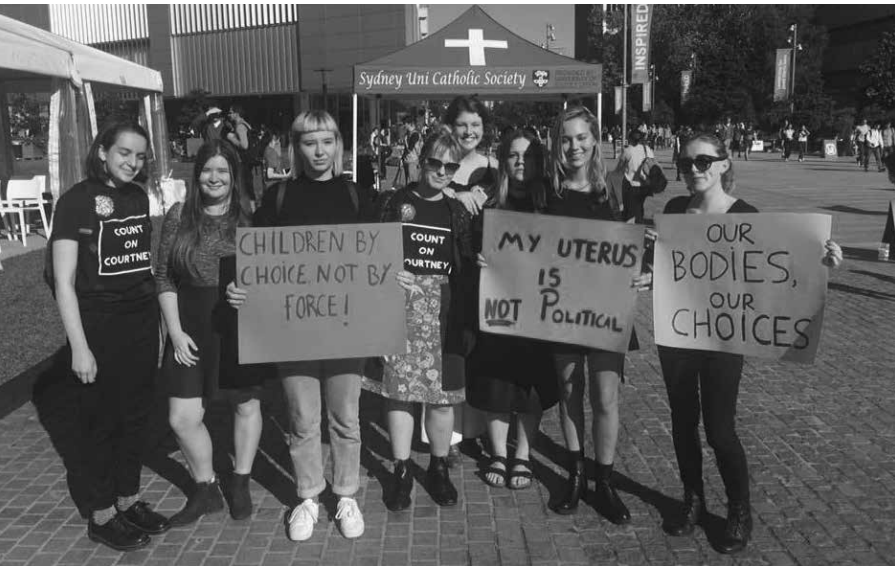 Sydney Uni Catholic Society
INSPIRED
COUNT
ON
COURTNEY
CHILDREN BY
CHOICE, NOT BY
FORCE!
COUNT
ON
OURTNEY
MY UTERUS
IS
NOT POLITICAL
OUR
BODIES,
OUR
CHOICES